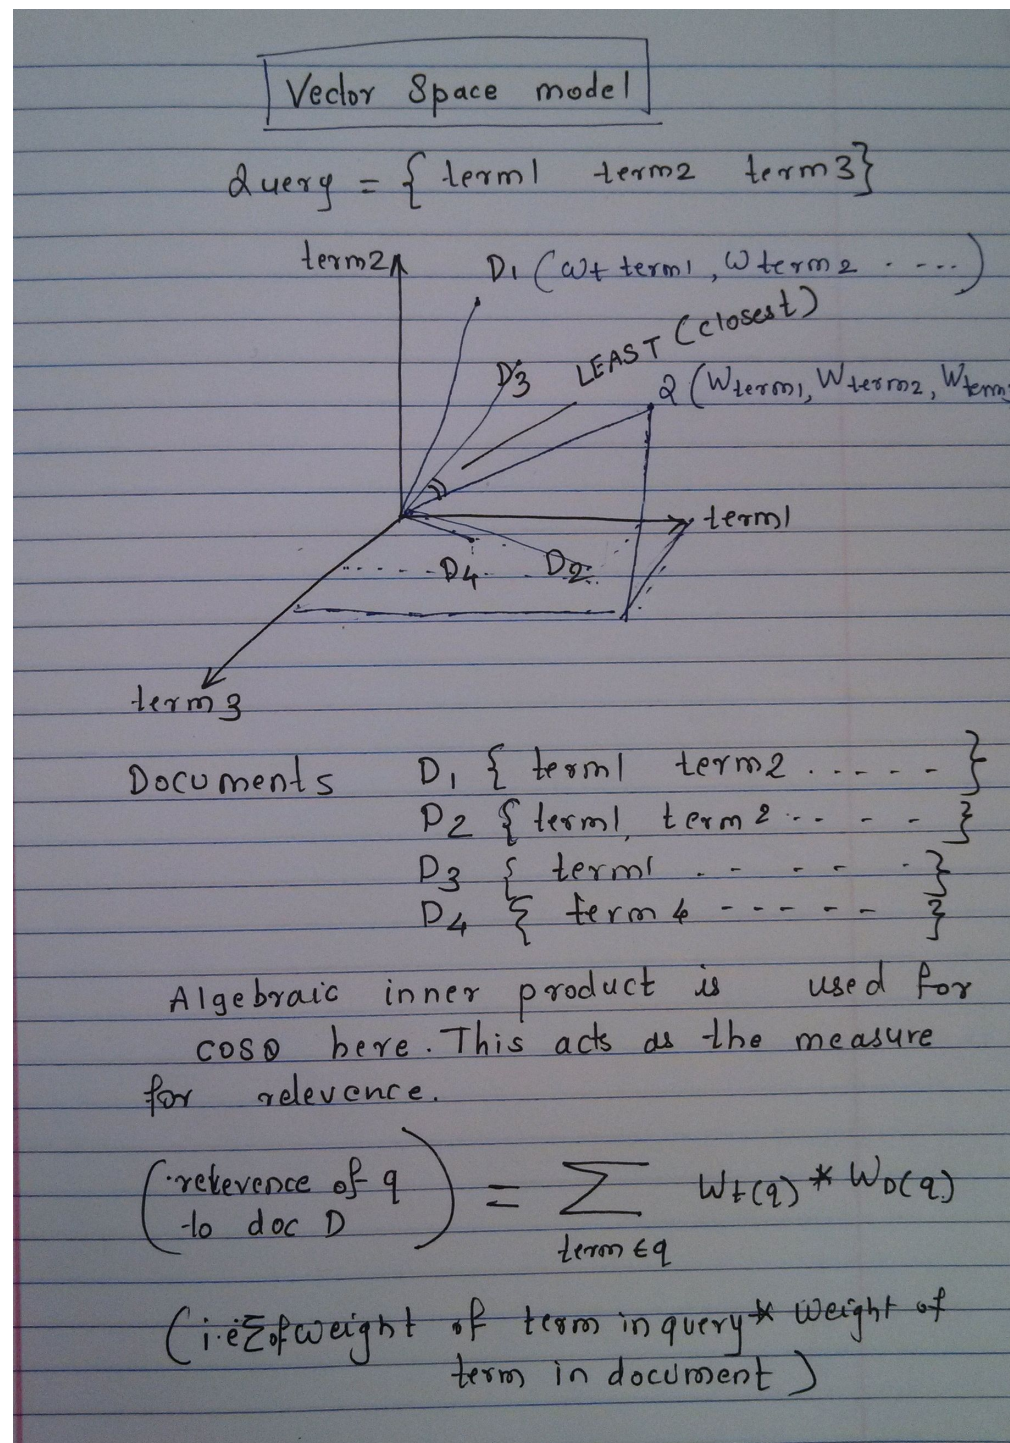 Vector Space model
Query = { term1 term2 term3}
term2
D1 (wt term1, W term2 . ....)
LEAST (closest)
D3
Q (Wterm1, Wterm2, Wterm
term1
D4
D2
term 3
Documents D1 { term1 term2 ..... }
D2 { term1, term2 .. . . . }
D3 { term1 . . . . . }
D4 { term 4 - - - - - }
Algebraic inner product is used for
cosθ here. This acts as the measure
for relevence.
(relevence of q
to doc D) = Σ Wt(q) * WD(q)
term ∈ q
(i.e Σ of weight of term in query * Weight of
term in document)